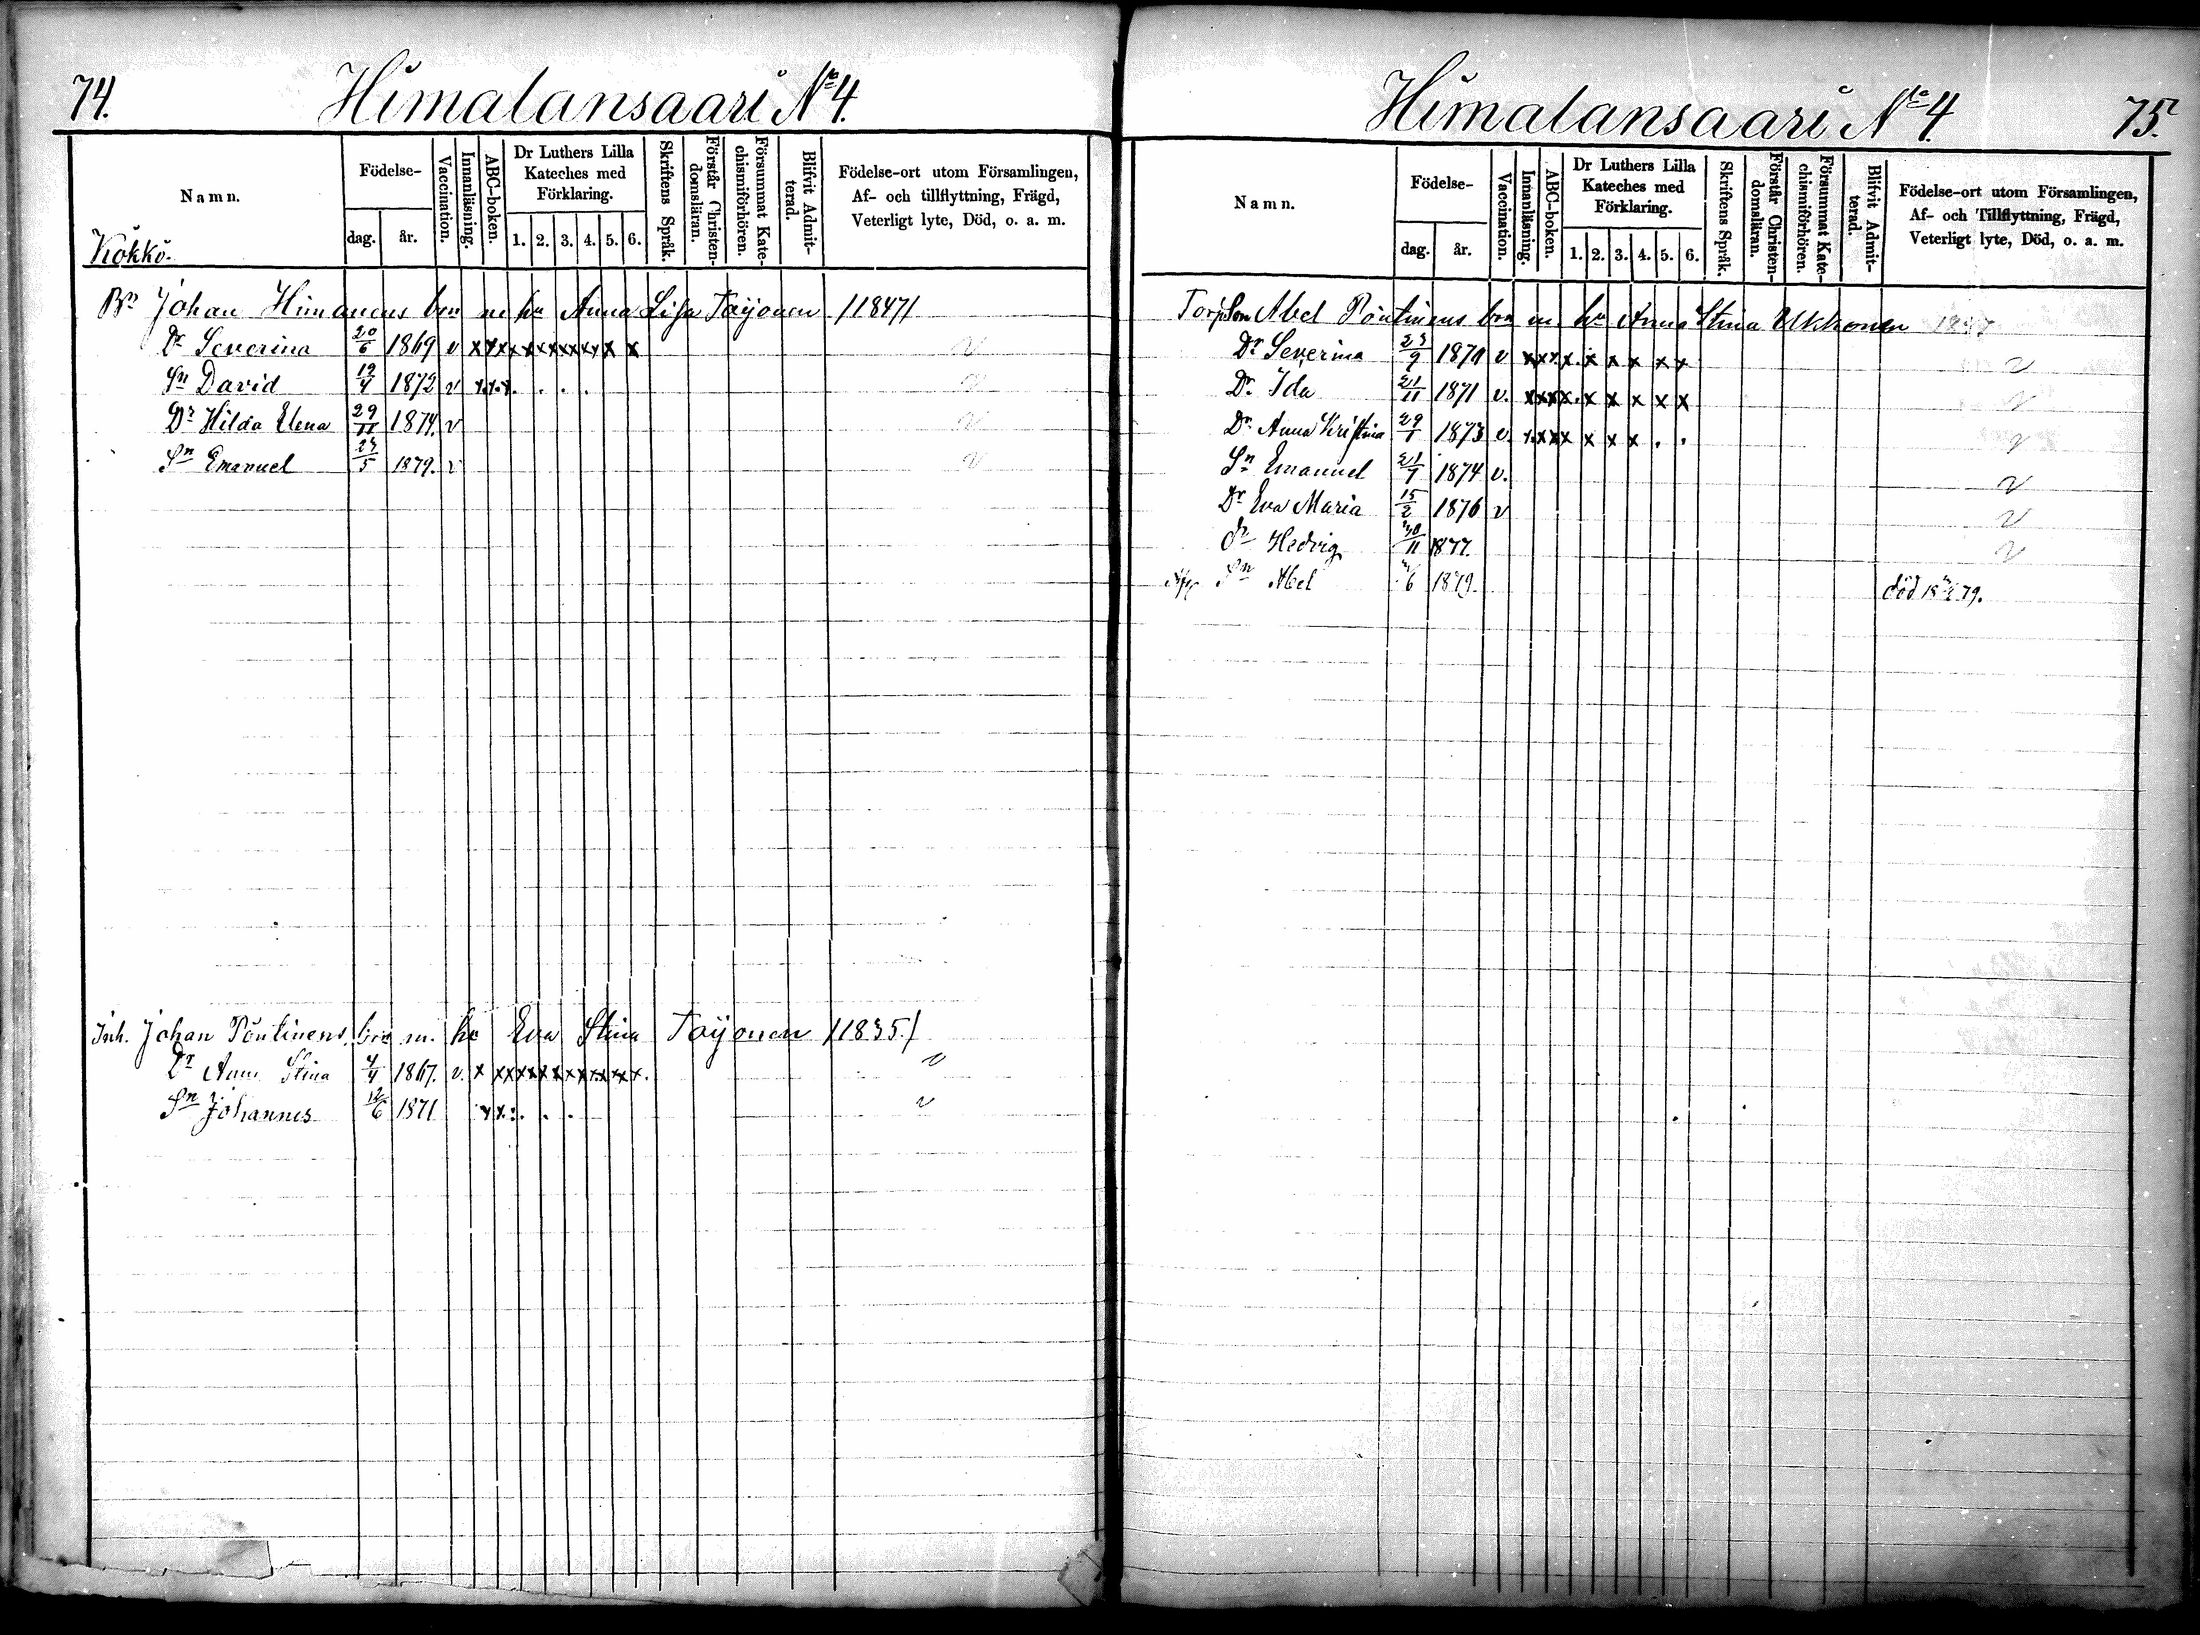 74.
Himalansaari No 4.
Namn.
Födelse-
dag.
år.
Vaccination.
Innanläsning.
ABC-boken.
Dr Luthers Lilla Kateches med Förklaring.
1. 2. 3. 4. 5. 6.
Skriftens Språk.
Förstår Christen-domsläran.
Försummat Kate-chismiförhören.
Blifvit Admit-terad.
Födelse-ort utom Församlingen, Af- och tillflyttning, Frägd, Veterligt lyte, Död, o. a. m.
Kokko.
Bn Johan Himanens brn m hu Anna Lisa Taijonen /1847/
Dr Severina 20/6 1869 v x x x x x x x x x x x v
Sn David 19/4 1872 v x x x . . . . v
Dr Hilda Elena 29/11 1874. v v
Sn Emanuel 23/5 1879. v v
Inh. Johan Pöntinens brn m. hu Eva Stina Taijonen /1835./
Dr Anna Stina 4/4 1867. v. x x x x x x x x x x x x. v
Sn Johannes 12/6 1871 x x . . . v
Himalansaari No 4.
75.
Namn.
Födelse-
dag.
år.
Vaccination.
Innanläsning.
ABC-boken.
Dr Luthers Lilla Kateches med Förklaring.
1. 2. 3. 4. 5. 6.
Skriftens Språk.
Förstår Christen-domsläran.
Försummat Kate-chismiförhören.
Blifvit Admit-terad.
Födelse-ort utom Församlingen, Af- och Tillflyttning, Frägd, Veterligt lyte, Död, o. a. m.
Abel Pöntinens brn m. hu Anna Stina Ukkonen 1847
Dr Severina 23/9 1870 v x x x x . x x x x x v
Dr Ida 21/11 1871 v. x x x x . x x x x x v
Dr Anna Kristina 29/1 1873 v. x x x x x x x . . v
Sn Emanuel 21/7 1874 v. v
Dr Eva Maria 15/2 1876 v v
Dr Hedvig 30/11 1877. v
Sn Abel 1879. död 79.